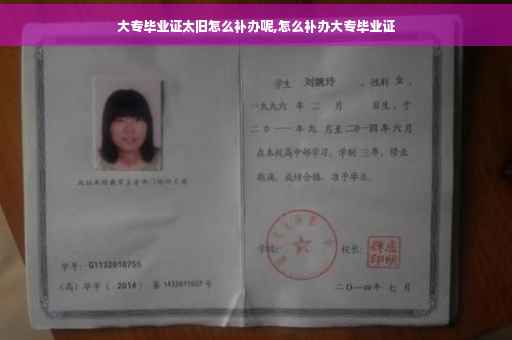 大专毕业证太旧怎么补办呢,怎么补办大专毕业证
学生 刘婉玲 ，性别 女 ，
一九九六 年 二 月 日生，于
二〇一一年九 月至二〇一四年 六 月
在本校高中部学习，学制 三年，修业
期满，成绩合格，准予毕业。
学号：G1132010755
（高）毕字（ 2014 ）第 1432011027 号
学校：
校长：
二〇一四年 七 月